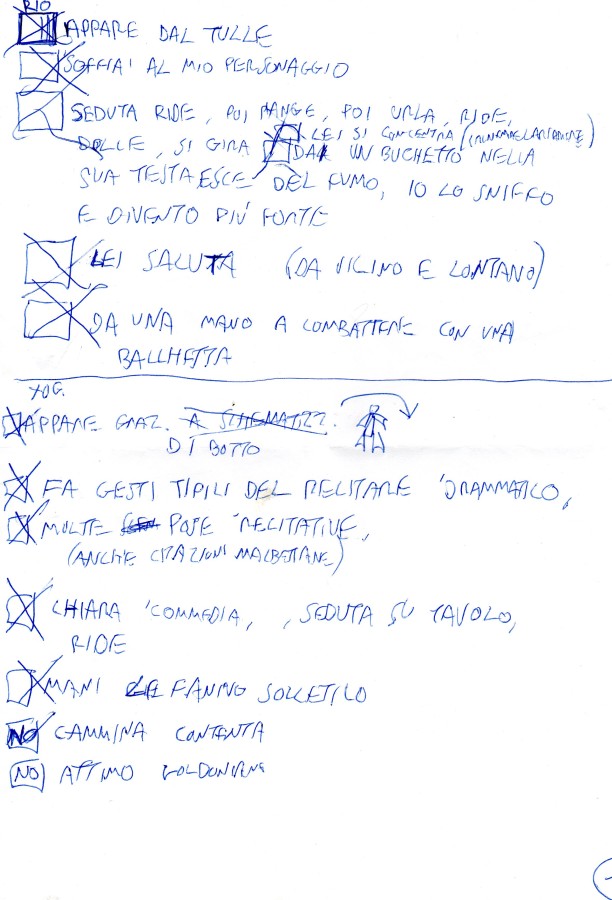 RIO
APPARE DAL TULLE
SOFFIA AL MIO PERSONAGGIO
SEDUTA RIDE, POI PIANGE, POI URLA, RIDE,
LEI SI CONCENTRA
SI GIRA DA UN BUCHETTO NELLA
SUA TESTA ESCE DEL FUMO, IO LO SNIFFO
E DIVENTO PIÚ FORTE
LEI SALUTA (DA VICINO E LONTANO)
DA UNA MANO A COMBATTERE CON UNA
BACCHETTA
YOG.
APPARE GRAZ.
DI BOTTO
FA GESTI TIPICI DEL RECITARE 'DRAMMATICO,
MOLTE POSE 'RECITATIVE,
(ANCHE CITAZIONI MACBETTIANE)
CHIARA 'COMMEDIA, , SEDUTA SU TAVOLO,
RIDE
MANI LE FANNO SOLLETICO
NO CAMMINA CONTENTA
NO ATTIMO